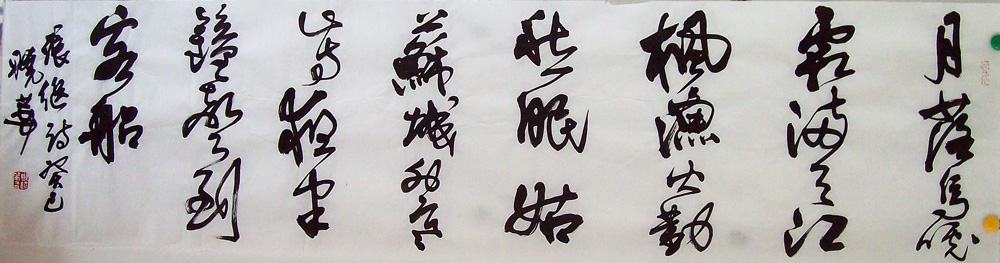 月落烏啼
霜满天江
楓漁火對
愁眠姑
蘇城外寒
山寺夜半
鐘聲到
客船
張继诗癸巳
曉華